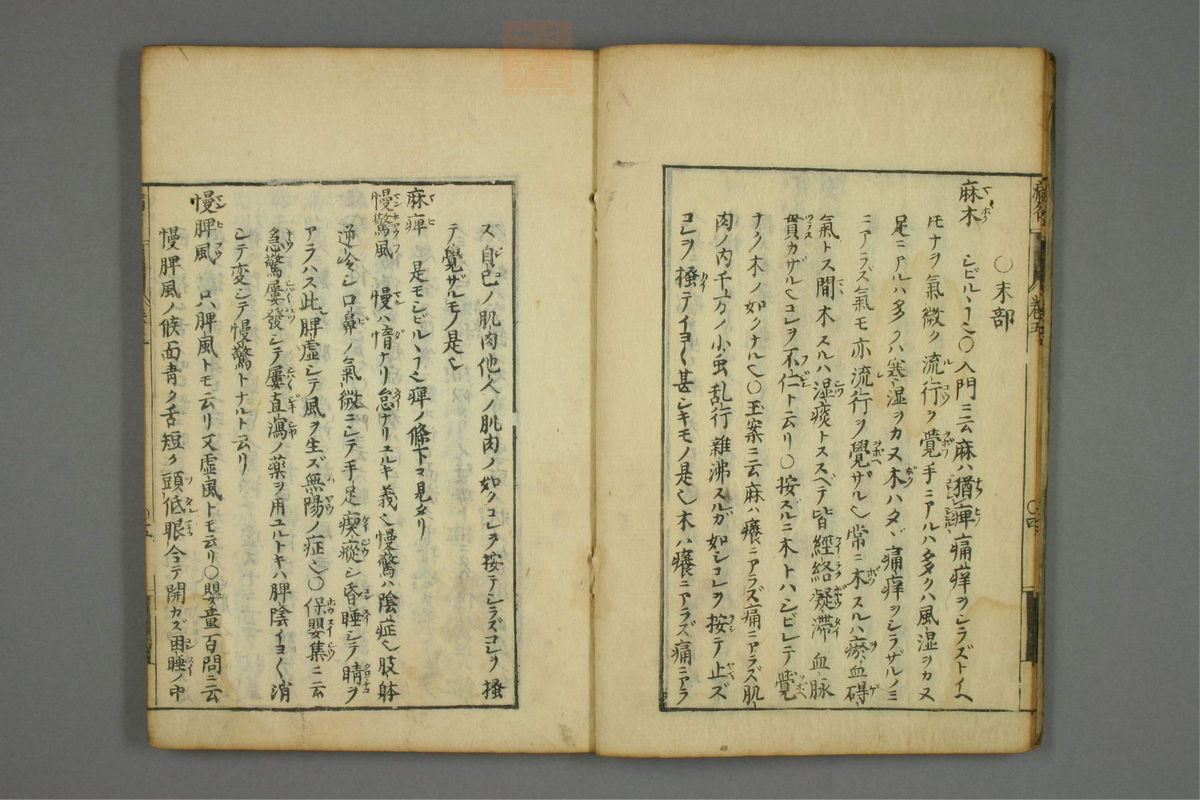 ○末部
麻木 シビルヽヿ也○入門ニ云麻ハ猶痺痛痒ヲシラズトイヘ
𪜈ナヲ氣微ク流行ヲ覺手ニアルハ多クハ風湿ヲカヌ
足ニアルハ多クハ寒湿ヲカヌ木ハタヾ痛痒ヲシラザルノミ
ニアラズ氣モ亦流行ヲ覺ヘザル也常ニ木スルハ瘀血碍
氣トス間木スルハ湿痰トススベテ皆経絡凝滞血脉
貫カザル也コレヲ不仁ト云リ○按ズルニ木トハシビレテ覺
ナク木ノ如クナル也○玉案ニ云麻ハ癢ニアラズ痛ニアラズ肌
肉ノ内千万ノ小虫乱行雜沸スルガ如シコレヲ按テ止ズ
コレヲ搔テイヨ〱甚シキモノ是也木ハ癢ニアラズ痛ニアラ
ス自己ノ肌肉他人ノ肌肉ノ如クコレヲ按テシラズコレヲ搔
テ覺ザルモノ是也
麻痺 是モシビルヽヿ也痺ノ條下ヱ見タリ
慢驚風 慢ハ惰ナリ怠ナリユルキ義也慢驚ハ陰症也肢躰
逆冷シ口鼻ノ氣微ニシテ手足瘈瘲シ昏睡シテ睛ヲ
アラハス此脾虚シテ風ヲ生ズ無陽ノ症也○保嬰集ニ云
急驚屢發シテ屢直瀉ノ藥ヲ用ユルトキハ脾陰イヨ〱消
シテ変シテ慢驚トナルト云リ
慢脾風 只脾風トモ云リ又虚風トモ云リ○嬰童百問ニ云
慢脾風ノ候面青ク舌短ク頭低眼合テ開カズ困睡ノ中